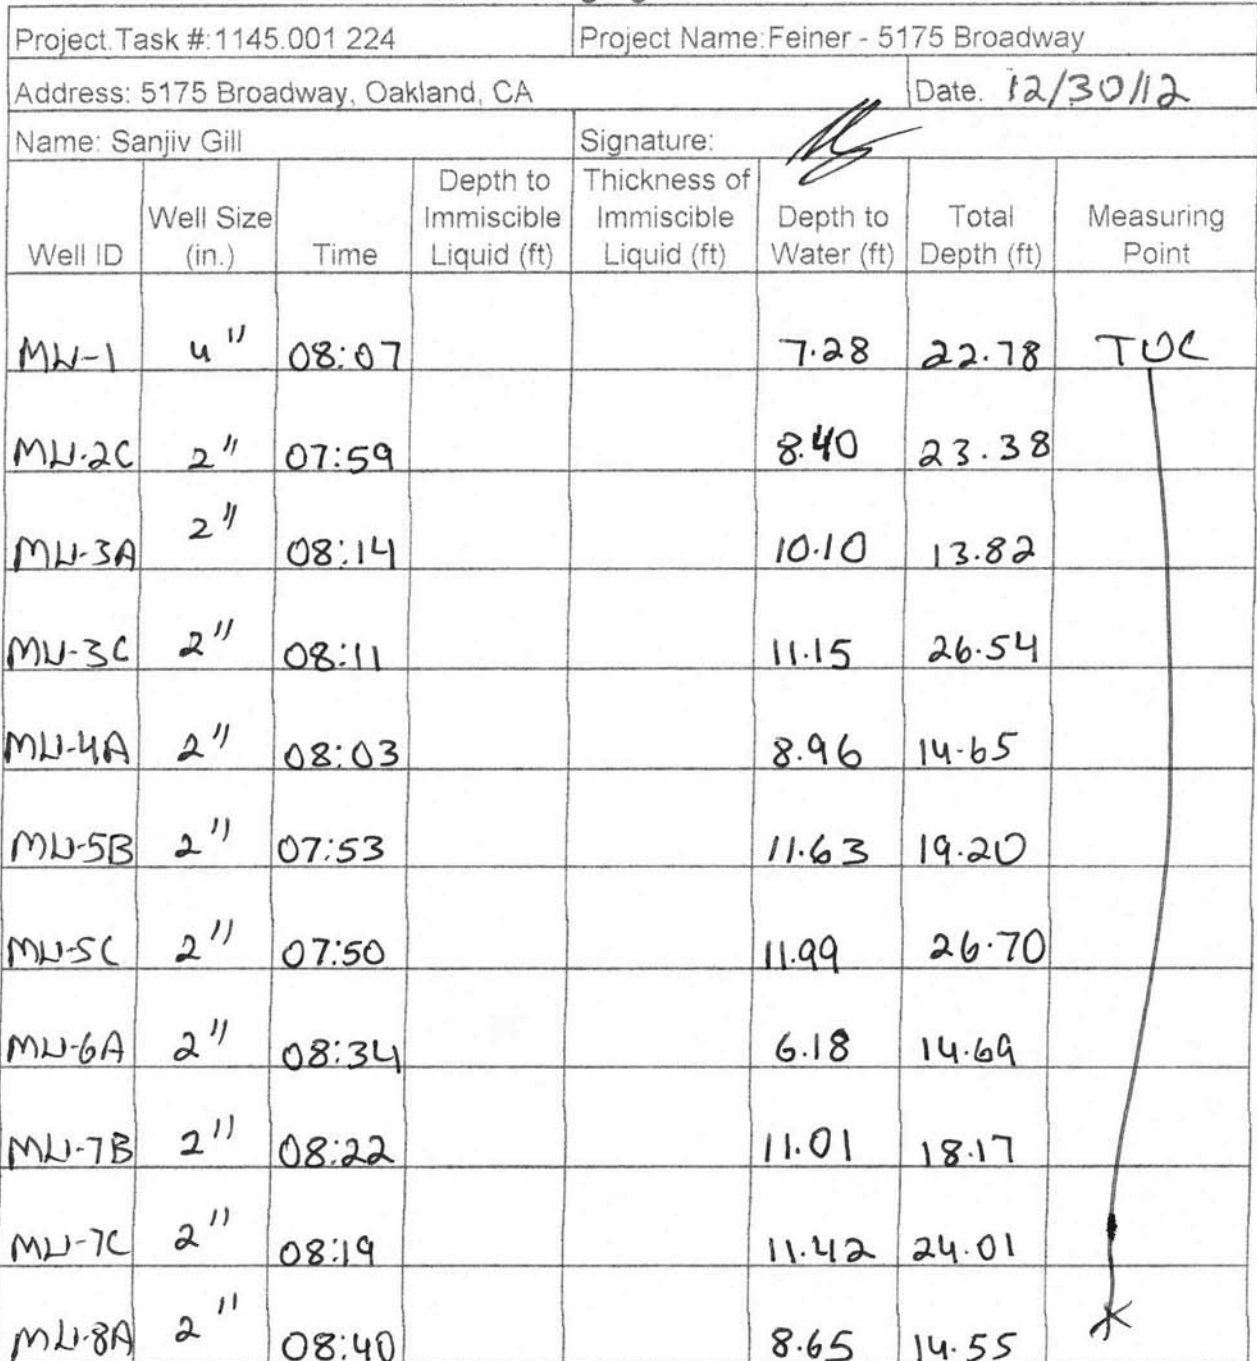 Project.Task #:1145.001 224 Project Name:Feiner - 5175 Broadway
Address: 5175 Broadway, Oakland, CA Date. 12/30/12
Name: Sanjiv Gill Signature:
Well ID Well Size (in.) Time Depth to Immiscible Liquid (ft) Thickness of Immiscible Liquid (ft) Depth to Water (ft) Total Depth (ft) Measuring Point
MW-1 4" 08:07 7.28 22.78 TOC
MW-2C 2" 07:59 8.40 23.38
MW-3A 2" 08:14 10.10 13.82
MW-3C 2" 08:11 11.15 26.54
MW-4A 2" 08:03 8.96 14.65
MW-5B 2" 07:53 11.63 19.20
MW-5C 2" 07:50 11.99 26.70
MW-6A 2" 08:34 6.18 14.69
MW-7B 2" 08:22 11.01 18.17
MW-7C 2" 08:19 11.42 24.01
MW-8A 2" 08:40 8.65 14.55